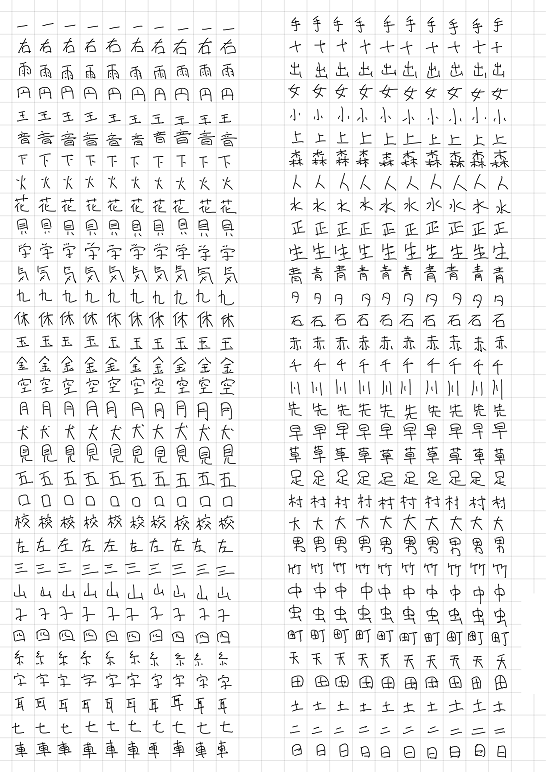 一一一一一一一一一一
右右右右右右右右右右
雨雨雨雨雨雨雨雨雨雨
円円円円円円円円円円
王王王王王王王王王王
音音音音音音音音音音
下下下下下下下下下下
火火火火火火火火火火
花花花花花花花花花花
貝貝貝貝貝貝貝貝貝貝
学学学学学学学学学学
気気気気気気気気気気
九九九九九九九九九九
休休休休休休休休休休
玉玉玉玉玉玉玉玉玉玉
金金金金金金金金金金
空空空空空空空空空空
月月月月月月月月月月
犬犬犬犬犬犬犬犬犬犬
見見見見見見見見見見
五五五五五五五五五五
口口口口口口口口口口
校校校校校校校校校校
左左左左左左左左左左
三三三三三三三三三三
山山山山山山山山山山
子子子子子子子子子子
四四四四四四四四四四
糸糸糸糸糸糸糸糸糸糸
字字字字字字字字字字
耳耳耳耳耳耳耳耳耳耳
七七七七七七七七七七
車車車車車車車車車車
手手手手手手手手手手
十十十十十十十十十十
出出出出出出出出出出
女女女女女女女女女女
小小小小小小小小小小
上上上上上上上上上上
森森森森森森森森森森
人人人人人人人人人人
水水水水水水水水水水
正正正正正正正正正正
生生生生生生生生生生
青青青青青青青青青青
夕夕夕夕夕夕夕夕夕夕
石石石石石石石石石石
赤赤赤赤赤赤赤赤赤赤
千千千千千千千千千千
川川川川川川川川川川
先先先先先先先先先先
早早早早早早早早早早
草草草草草草草草草草
足足足足足足足足足足
村村村村村村村村村村
大大大大大大大大大大
男男男男男男男男男男
竹竹竹竹竹竹竹竹竹竹
中中中中中中中中中中
虫虫虫虫虫虫虫虫虫虫
町町町町町町町町町町
天天天天天天天天天天
田田田田田田田田田田
土土土土土土土土土土
二二二二二二二二二二
日日日日日日日日日日